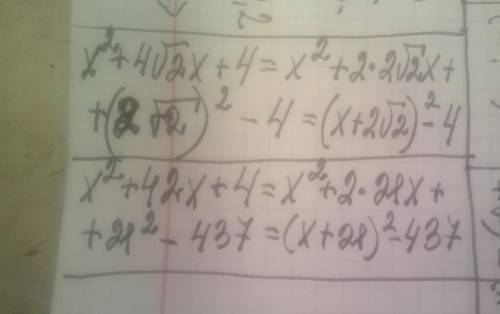 x² + 4√2x + 4 = x² + 2·2√2x +
+ (2√2)² - 4 = (x + 2√2)² - 4
x² + 42x + 4 = x² + 2·21x +
+ 21² - 437 = (x + 21)² - 437